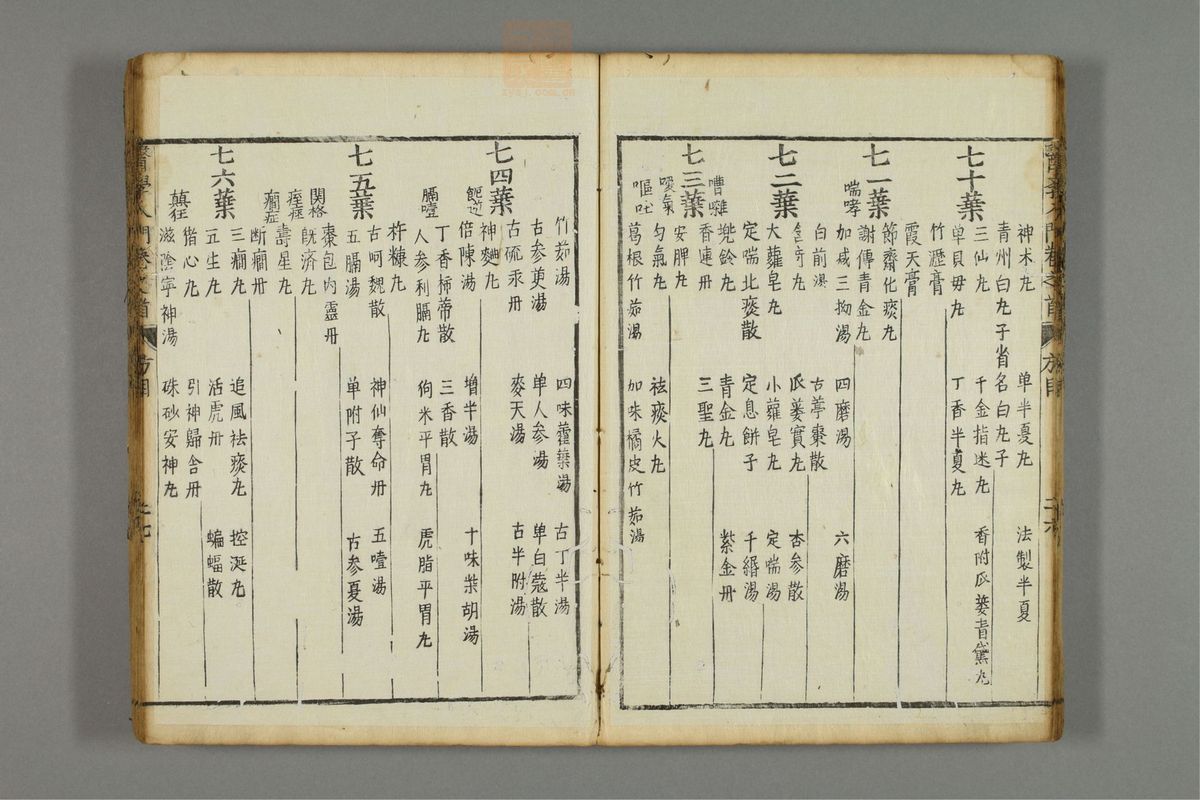 神术丸 単半夏丸 法製半夏
青州白丸子省名白丸子
七十葉
三仙丸 千金指迷丸 香附瓜蔞青黛丸
単貝母丸 丁香半夏丸
竹瀝膏
霞天膏
節齋化痰丸
七一葉
謝傳青金丸
喘哮
加减三拗湯 四磨湯 六磨湯
白前湯 古葶棗散
含竒丸 瓜蔞實丸 杏参散
七二葉
大蘿皂丸 小蘿皂丸 定喘湯
定喘化痰散 定息餅子 千緡湯
兠鈴丸 青金丸 紫金丹
嘈雜
香連丹 三聖丸
七三葉
安脾丸
噯氣
匀氣丸 祛痰火丸
嘔吐
葛根竹茹湯 加味橘皮竹茹湯
竹茹湯 四味藿葉湯 古丁半湯
古参萸湯 単人参湯 単白蔻散
古硫汞丹 麥天湯 古半附湯
七四葉
神麯丸
倍陳湯 增半湯 十味柴胡湯
丁香柿蒂散 三香散
膈噎
人参利膈丸 狗米平胃丸 虎脂平胃丸
杵糠丸
古呵魏散 神仙奪命丹 五噎湯
七五葉
五膈湯 単附子散 古参夏湯
棗包内靈丹
関格
既濟丸
痓痙
壽星丸
癇症
断癇丹
三癇丸 追風祛痰丸 控涎丸
七六葉
五生丸 活虎丹 蝙蝠散
猪心丸 引神歸舍丹
癲狂
滋陰寧神湯 硃砂安神丸